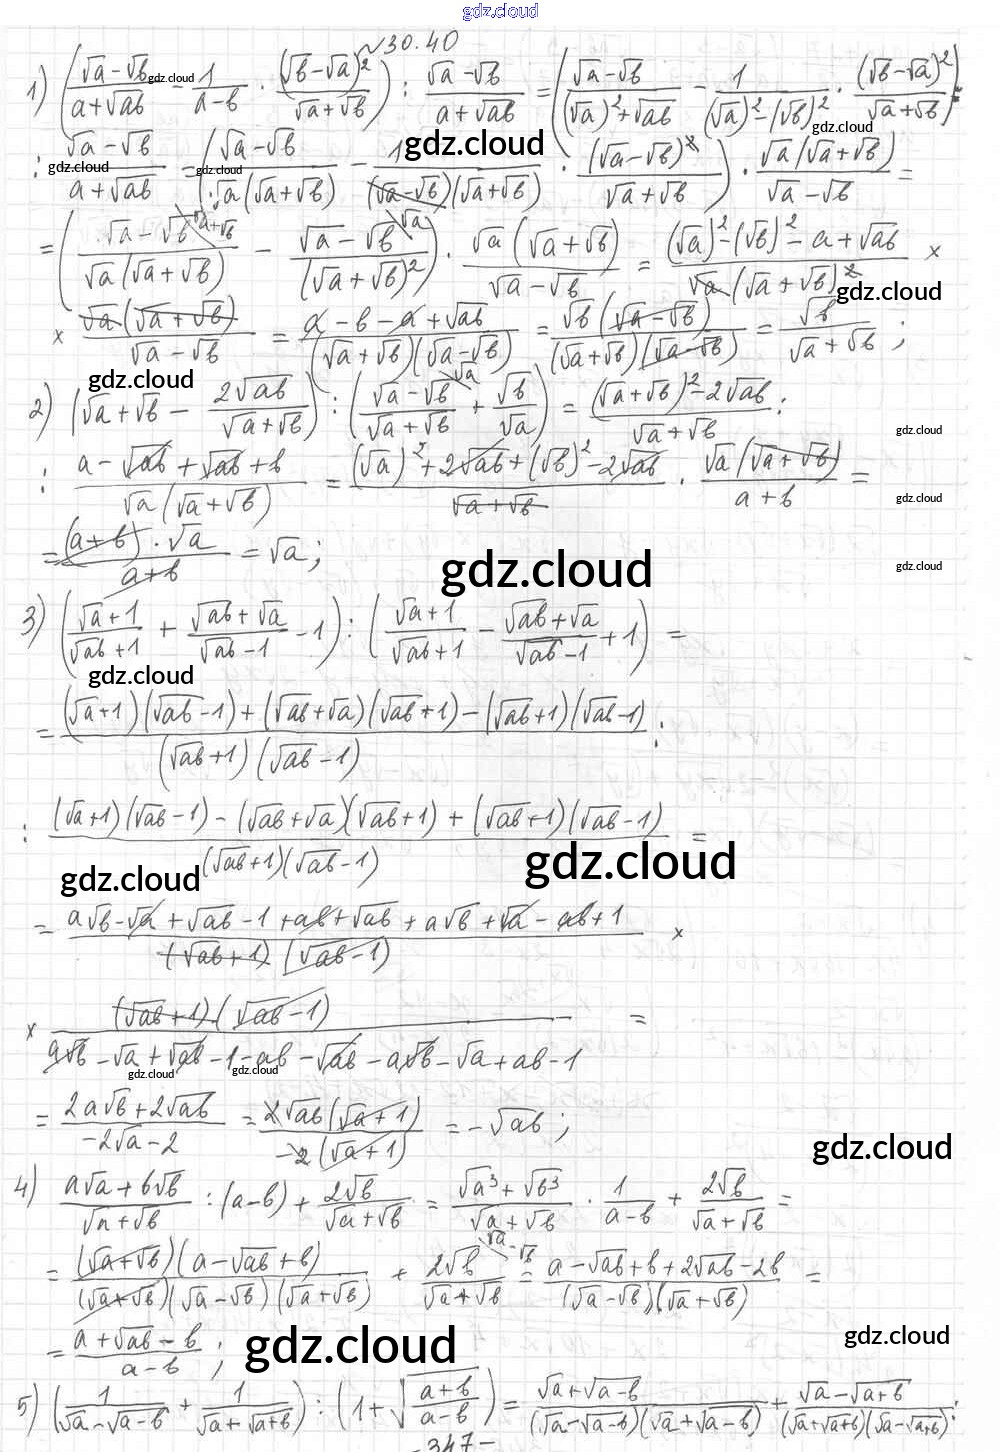 gdz.cloud
№30.40
1) ((√a-√b)/(a+√ab) - 1/(a-b) · (√b-√a)²/(√a+√b)) : (√a-√b)/(a+√ab) = ((√a-√b)/((√a)²+√ab) - 1/((√a)²-(√b)²) · (√b-√a)²/(√a+√b)) :
: (√a-√b)/(a+√ab) = ((√a-√b)/(√a(√a+√b)) - 1/((√a-√b)(√a+√b)) · (√a-√b)²/(√a+√b)) · √a(√a+√b)/(√a-√b) =
= ((√a-√b)/(√a(√a+√b)) - (√a-√b)/(√a+√b)²) · √a(√a+√b)/(√a-√b) = ((√a)²-(√b)²-a+√ab)/(√a(√a+√b)²) ×
× √a(√a+√b)/(√a-√b) = (a-b-a+√ab)/((√a+√b)(√a-√b)) = √b(√a-√b)/((√a+√b)(√a-√b)) = √b/(√a+√b);
2) (√a+√b - 2√ab/(√a+√b)) : ((√a-√b)/(√a+√b) + √b/√a) = ((√a+√b)²-2√ab)/(√a+√b) :
: (a-√ab+√ab+b)/(√a(√a+√b)) = ((√a)²+2√ab+(√b)²-2√ab)/(√a+√b) · √a(√a+√b)/(a+b) =
= (a+b)·√a/(a+b) = √a;
3) ((√a+1)/(√ab+1) + (√ab+√a)/(√ab-1) - 1) : ((√a+1)/(√ab+1) - (√ab+√a)/(√ab-1) + 1) =
= ((√a+1)(√ab-1)+(√ab+√a)(√ab+1)-(√ab+1)(√ab-1))/((√ab+1)(√ab-1)) :
: ((√a+1)(√ab-1)-(√ab+√a)(√ab+1)+(√ab+1)(√ab-1))/((√ab+1)(√ab-1)) =
= (a√b-√a+√ab-1+ab+√ab+a√b+√a-ab+1)/((√ab+1)(√ab-1)) ×
× (√ab+1)(√ab-1)/(a√b-√a+√ab-1-ab-√ab-a√b-√a+ab-1) =
= (2a√b+2√ab)/(-2√a-2) = 2√ab(√a+1)/(-2(√a+1)) = -√ab;
4) (a√a+b√b)/(√a+√b) : (a-b) + 2√b/(√a+√b) = (√a³+√b³)/(√a+√b) · 1/(a-b) + 2√b/(√a+√b) =
= (√a+√b)(a-√ab+b)/((√a+√b)(√a-√b)(√a+√b)) + 2√b/(√a+√b) = (a-√ab+b+2√ab-2b)/((√a-√b)(√a+√b)) =
= (a+√ab-b)/(a-b);
5) (1/(√a-√a-b) + 1/(√a+√a+b)) : (1+√((a+b)/(a-b))) = (√a+√a-b)/((√a-√a-b)(√a+√a-b)) + (√a-√a+b)/((√a+√a+b)(√a-√a+b)) :
-347-